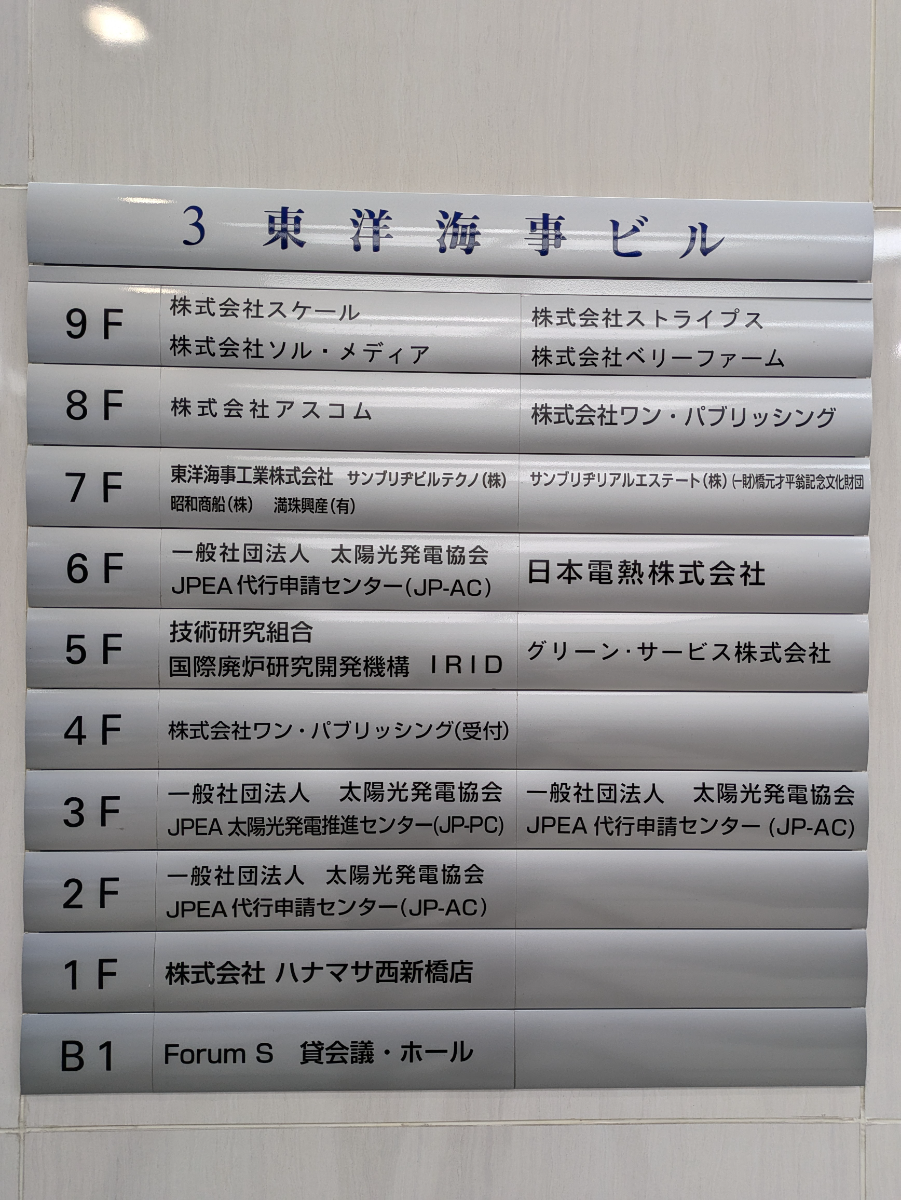 3 東洋海事ビル
9F
株式会社スケール
株式会社ソル・メディア
株式会社ストライプス
株式会社ベリーファーム
8F
株式会社アスコム
株式会社ワン・パブリッシング
7F
東洋海事工業株式会社 サンブリヂビルテクノ(株)
昭和商船(株) 満珠興産(有)
サンブリヂリアルエステート(株)(一財)橋元才平翁記念文化財団
6F
一般社団法人 太陽光発電協会
JPEA代行申請センター(JP-AC)
日本電熱株式会社
5F
技術研究組合
国際廃炉研究開発機構 IRID
グリーン・サービス株式会社
4F
株式会社ワン・パブリッシング(受付)
3F
一般社団法人 太陽光発電協会
JPEA太陽光発電推進センター(JP-PC)
一般社団法人 太陽光発電協会
JPEA代行申請センター(JP-AC)
2F
一般社団法人 太陽光発電協会
JPEA代行申請センター(JP-AC)
1F
株式会社 ハナマサ西新橋店
B1
Forum S 貸会議・ホール